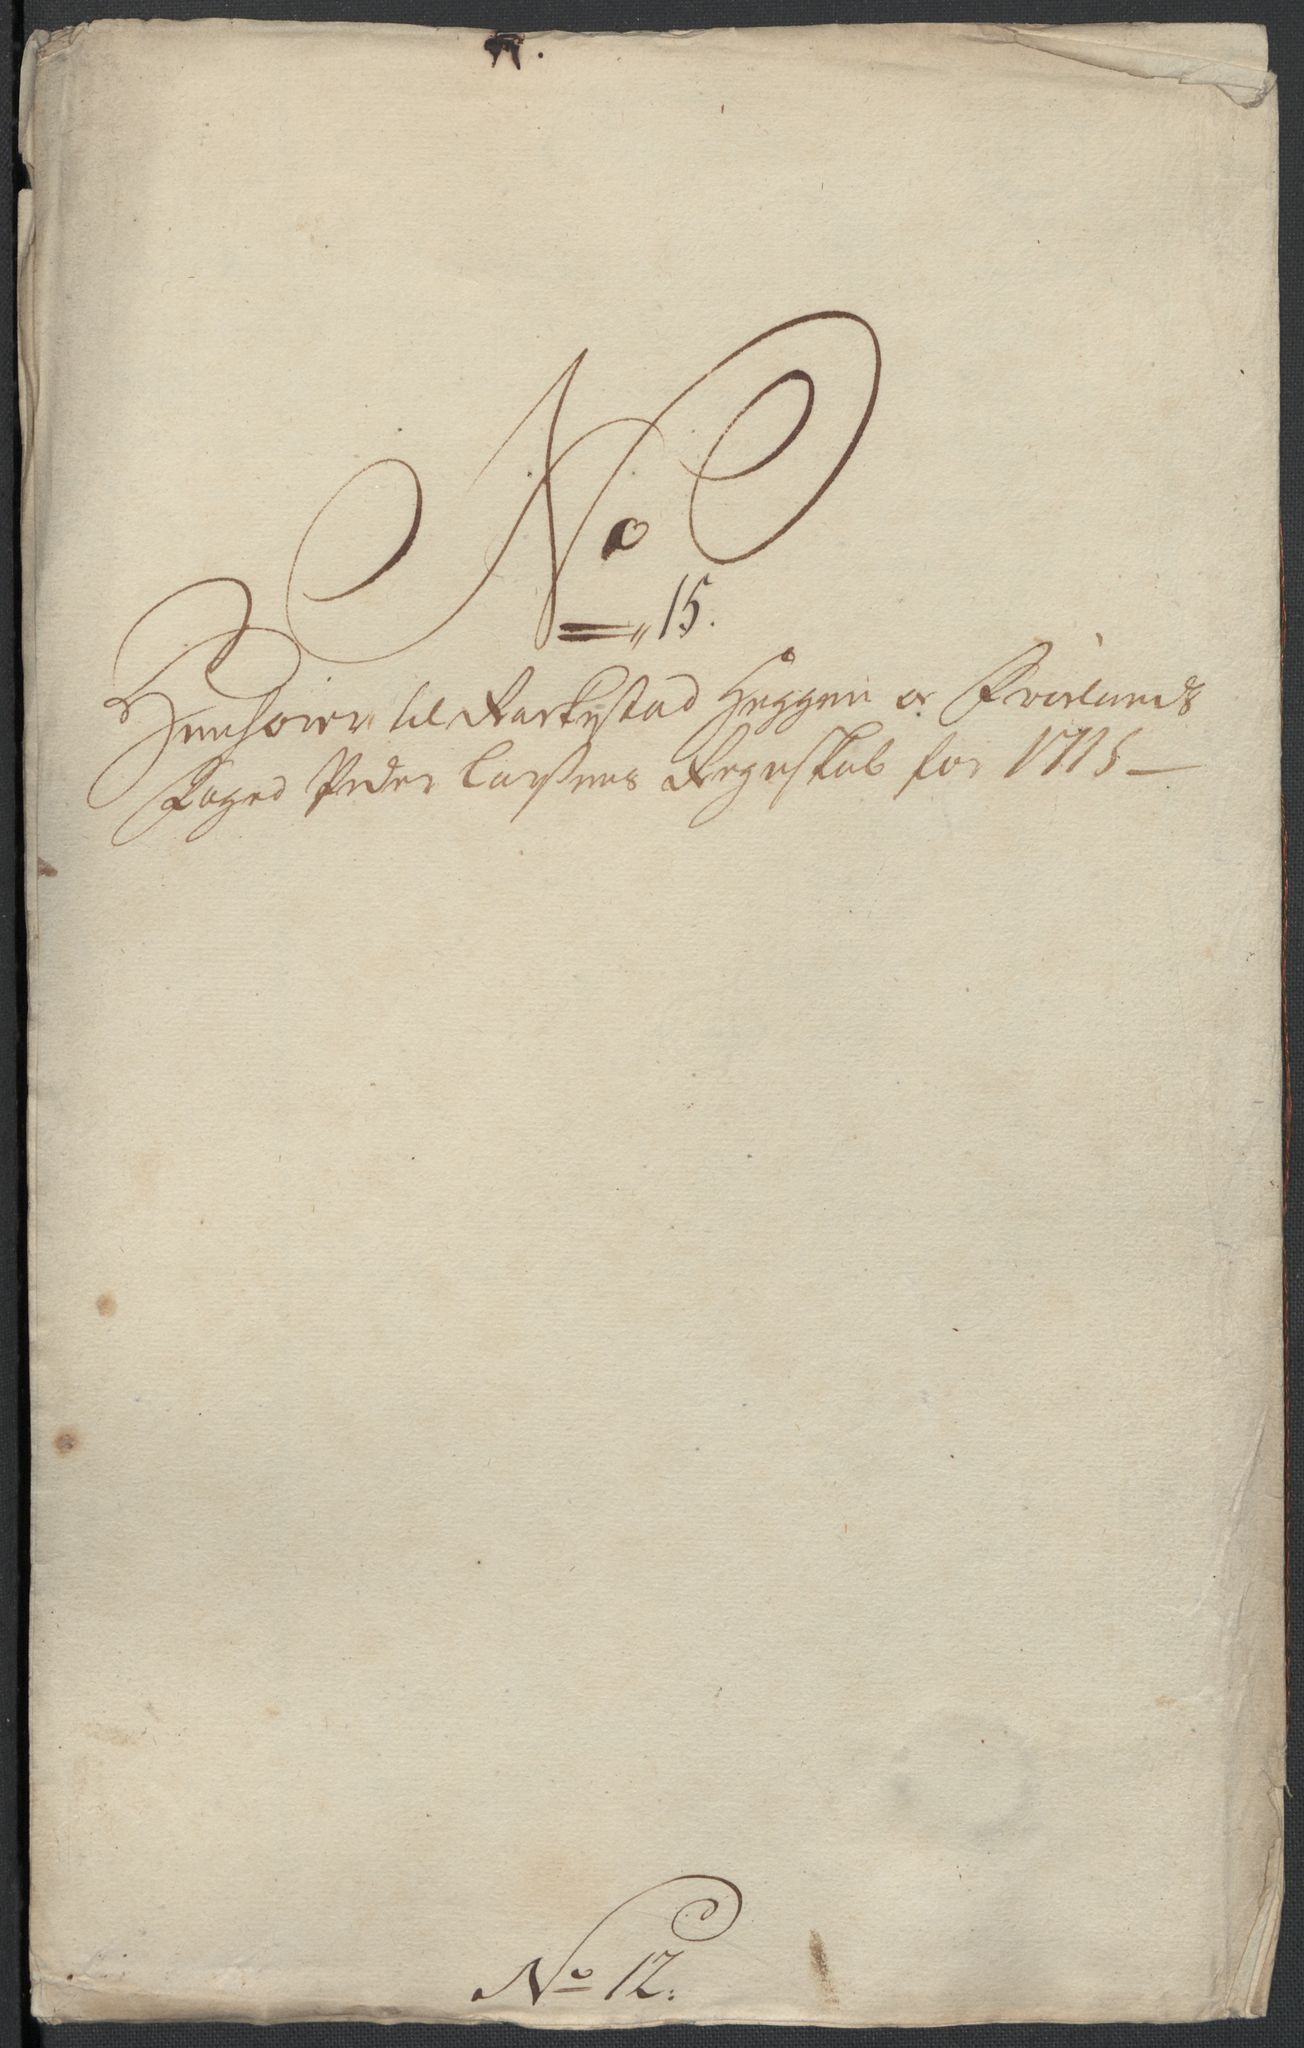 No
15.
Henhører til Rackestad Heggen oc Frølands
Foged Peder Larsens Regnskab for 1715
No 12.